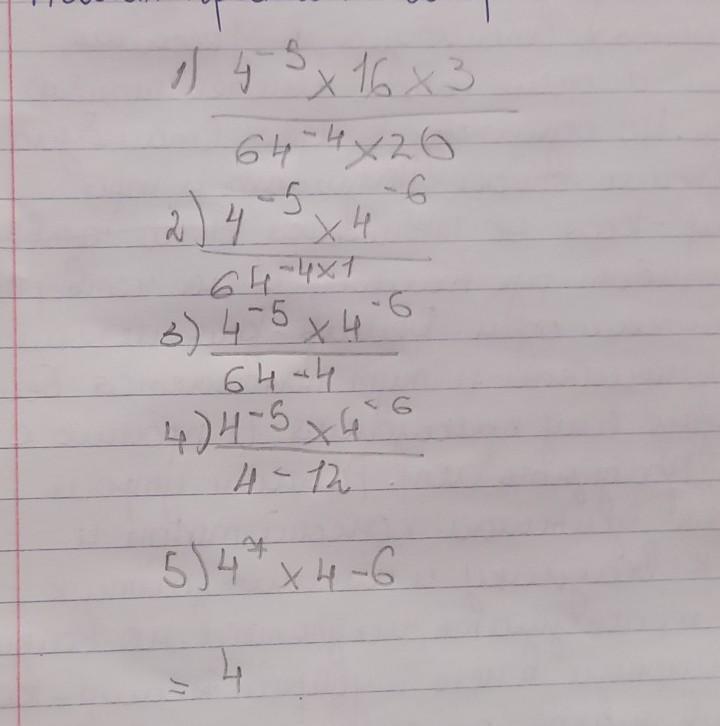 1) 4^-5 × 16 × 3
64^-4 × 20
2) 4^-5 × 4^-6
64^-4×1
3) 4^-5 × 4^-6
64-4
4) 4^-5 × 4^-6
4-12
5) 4^7 × 4-6
= 4